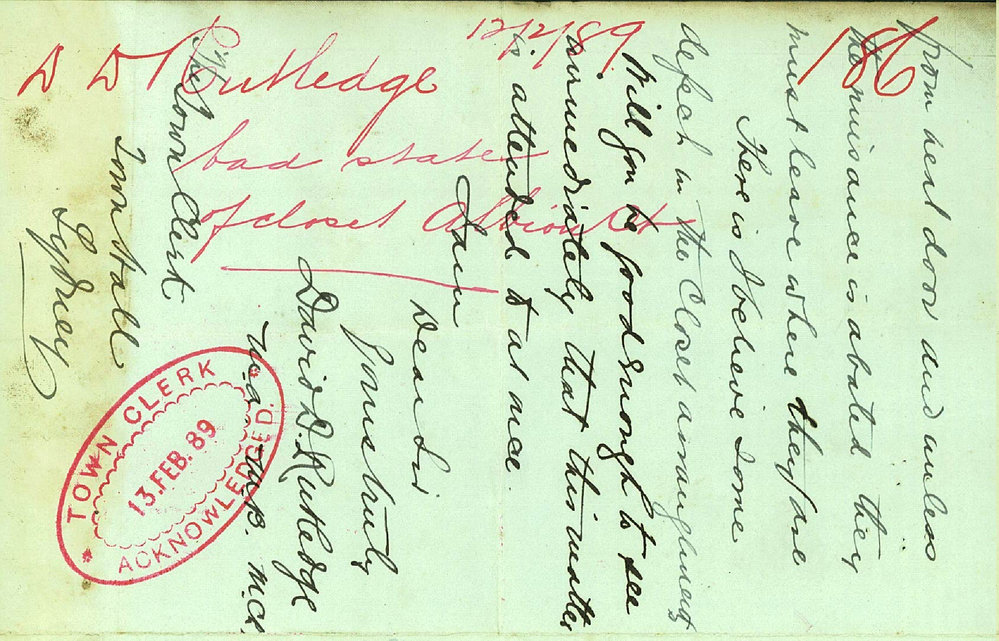 from next door and unless
the nuisance is abated they
must leave where they are
There is I believe some
defect in the Closet arrangements
Will you be good enough to see
immediately that this matter
is attended to at once.
I am
Dear Sir
Yours truly
David D. Rutledge
M.B. M.Ch.
The Town Clerk
Town Hall
Sydney
186
12/2/89
D D Rutledge
bad state
of closet Albion St
TOWN CLERK
13.FEB.89
ACKNOWLEDGED.